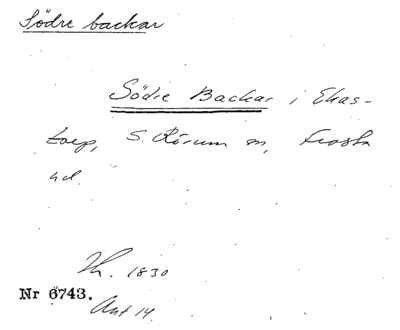 Södre backar
Södre Backar i Ekas-
torp, S. Rörum sn, Frosta
hd.
Th. 1830
Nr 6743.
Ant 14